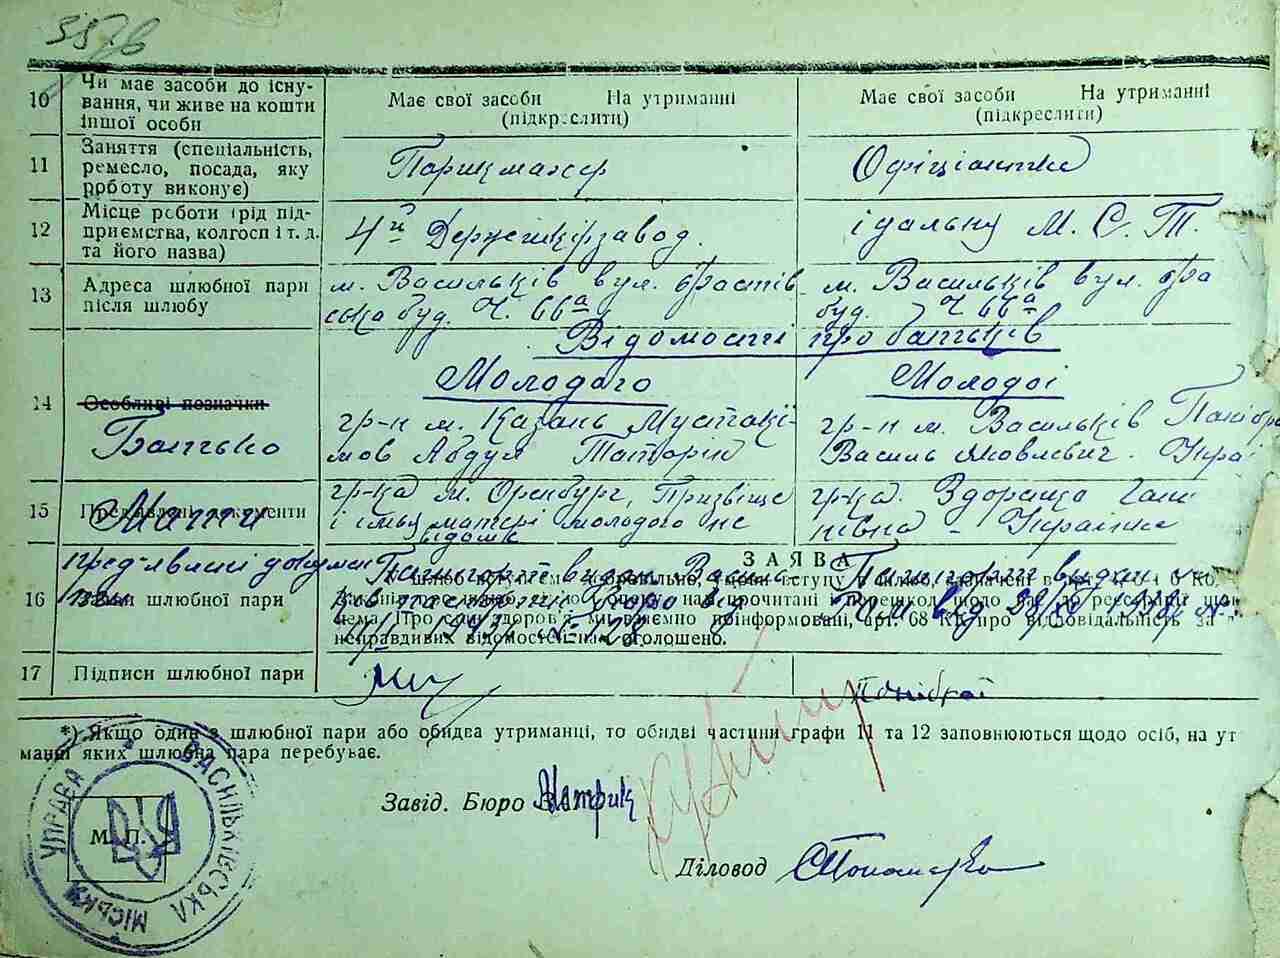 357.в
10 Чи має засоби до існу-
вання, чи живе на кошти
іншої особи
Має свої засоби На утриманні
(підкреслити)
Має свої засоби На утриманні
(підкреслити)
11 Заняття (спеціальність,
ремесло, посада, яку
роботу виконує)
Парикмахер
Офіціантка
12 Місце роботи (рід під-
приємства, колгосп і т. д.
та його назва)
4й Держшкірзавод.
ідальну М. С. Т.
13 Адреса шлюбної пари
після шлюбу
м. Васильків вул. брастів
ська буд. Ч. 66а
м. Васильків вул. бра
буд. Ч 66а
Відомості про батьків
Молодого
Молодої
14 Особливі позначки
Батько
гр-н м. Казань Мустакі-
мов Абдул Татарін
гр-н м. Васильків Панібра
Василь Яковлевич. Украї
15 документи
Мати
гр-ка м. Оренбург, Прізвіще
і імья матері молодого не
відомі
гр-ка. Здорищо Ган
нівна - Українка
пред'явлені докумен
ЗАЯВА
16 шлюбної пари
Пашпорт видан Василь-
Пашпорт видан
У шлюб вступаєм добровільно, умови вступу в шлюб, зазначені в
нам прочитані і перешкод щодо реєстрації
нема. Про стан здоров'я ми взаємно поінформовані, арт. 68 КК про відповідальність за
неправдивих відомостей нам оголошено.
17 Підписи шлюбної пари
Панібрат
*) Якщо один з шлюбної пари або обидва утриманці, то обидві частини графи 11 та 12 заповнюються щодо осіб, на ут
манні яких шлюбна пара перебуває.
Завід. Бюро
Діловод
М. П.
ВАСИЛЬКІВСЬКА МІСЬКА УПРАВА